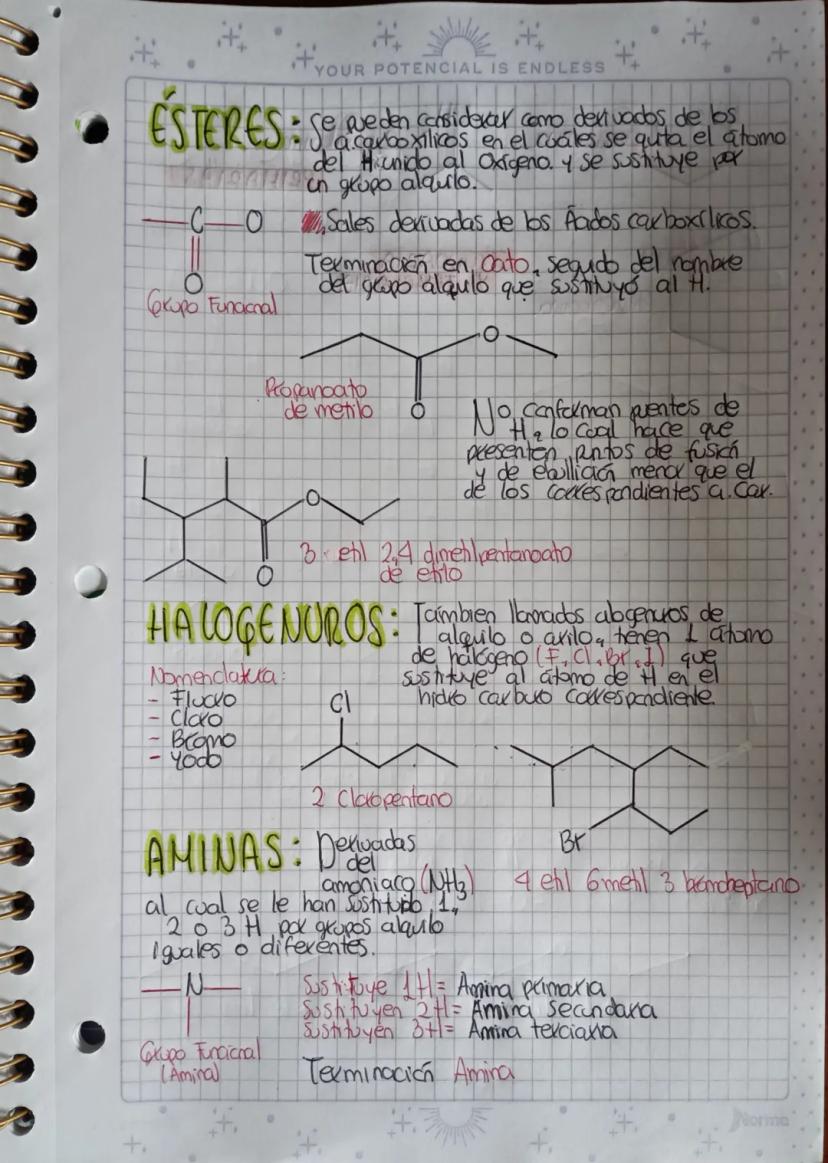 YOUR POTENCIAL IS ENDLESS
ÉSTERES: Se pueden considerar como derivados de los
a.carbooxilicos en el cuáles se quita el átomo
del H unido al Oxígeno. y se sustituye por
un grupo alquilo.
C O
Sales derivadas de los Ácidos carboxílicos.
O
Terminación en Oato, seguido del nombre
del grupo alquilo que sustituyó al H.
Grupo Funcional
O
Propanoato
de metilo
O
No conforman puentes de
H, lo cual hace que
presenten puntos de fusión
y de ebullición menor que el
de los correspondientes a. Car.
O
O
3- etil 2,4 dimetilpentanoato
de etilo
HALOGENUROS: También llamados alogenuros de
alquilo o arilo, tienen 1 átomo
de halógeno (F, Cl, Br, I) que
sustituye al átomo de H en el
hidro carburo correspondiente.
Nomenclatura:
- Fluoro
- Cloro
- Bromo
- Yodo
Cl
2 Cloropentano
Br
4 etil 6metil 3 bromoheptano
AMINAS: Derivadas
del
amoniaco (NH3)
al cual se le han sustituido 1,
2 o 3 H por grupos alquilo
iguales o diferentes.
N
Grupo Funcional
(Amina)
Sustituye 1H= Amina primaria
Sustituyen 2H= Amina secundaria
Sustituyen 3H= Amina terciaria
Terminación Amina
Norma